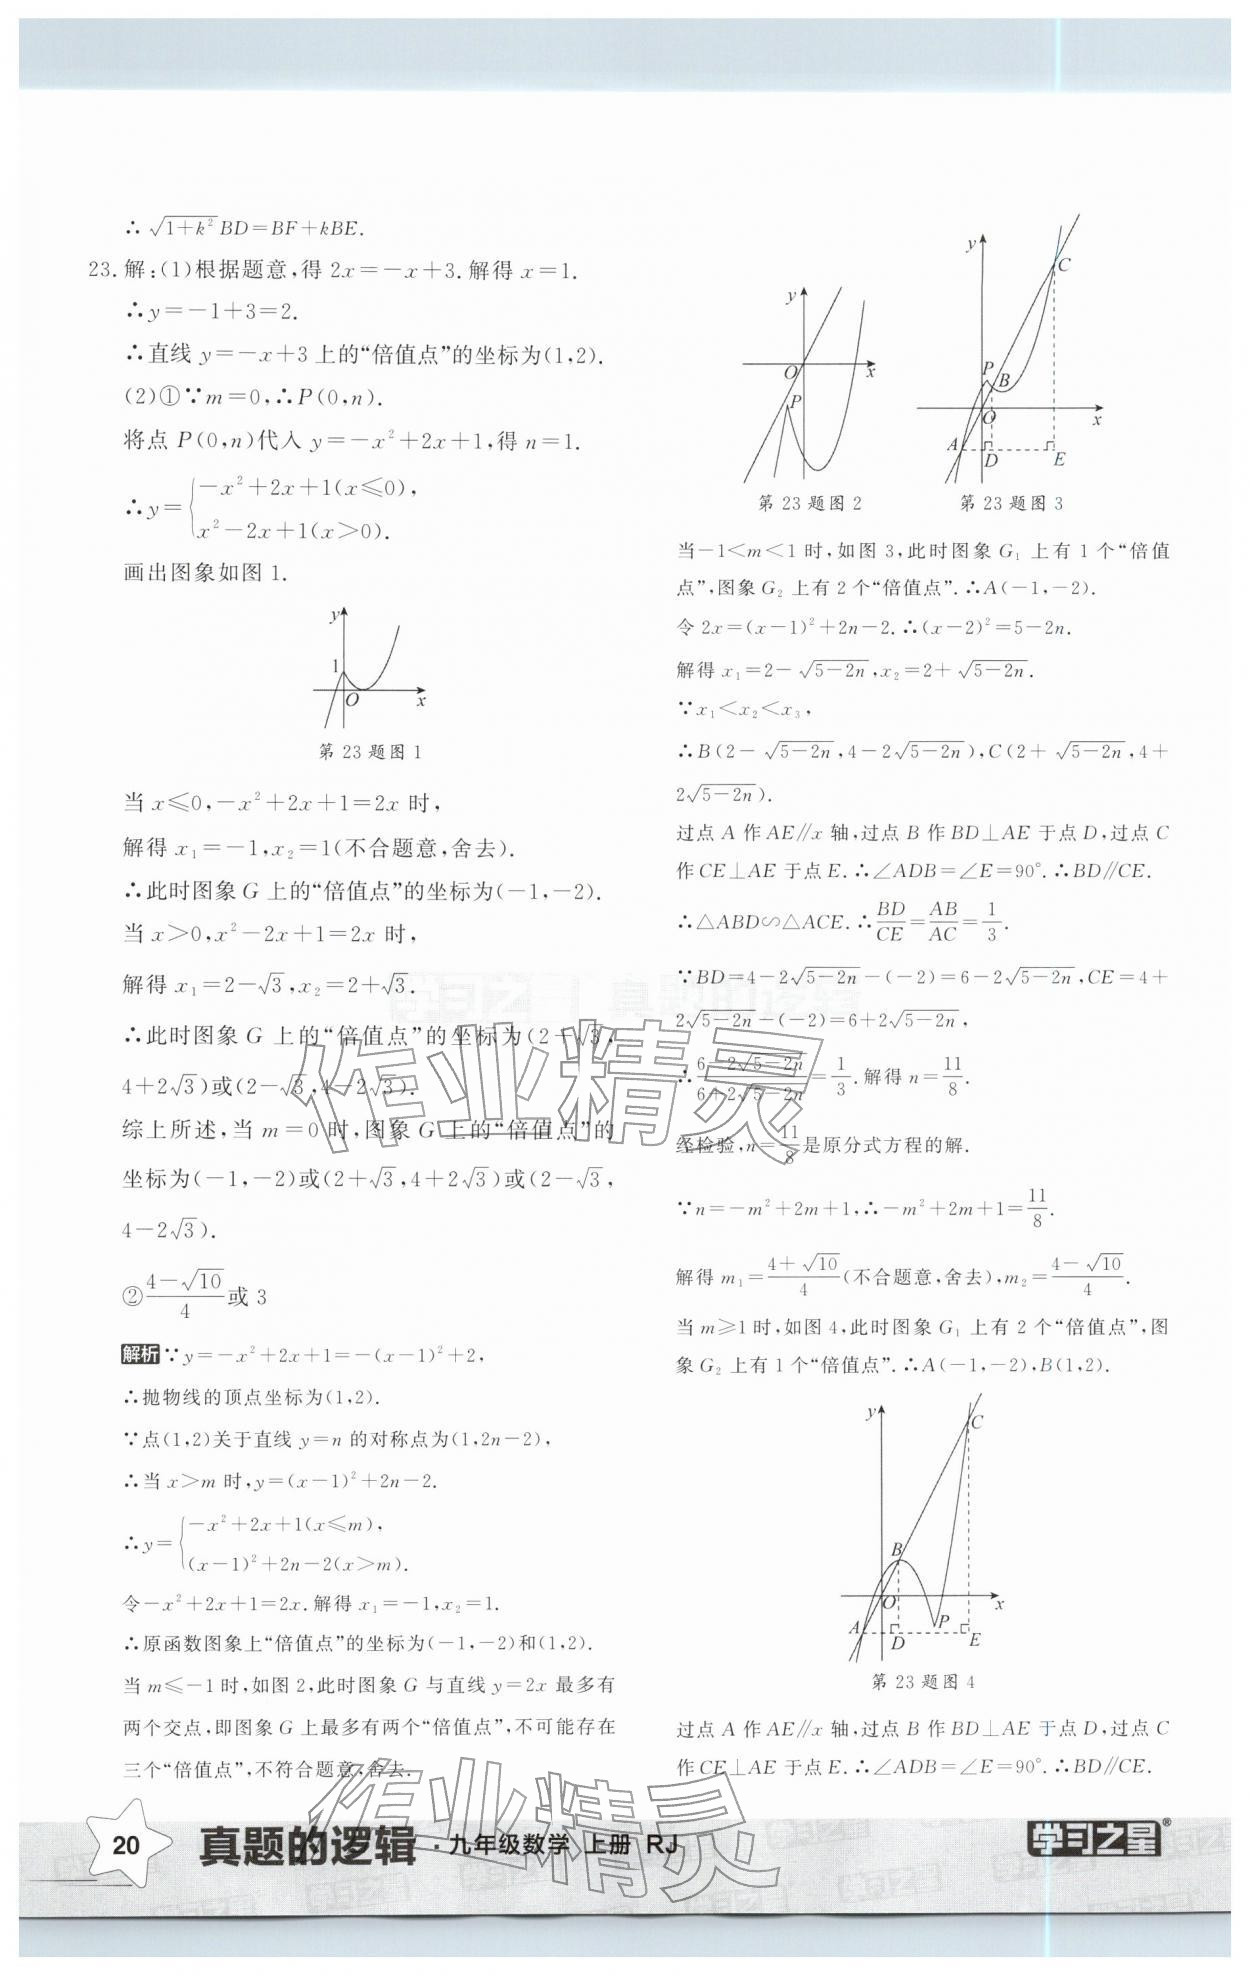 ∴√(1+k²)BD=BF+kBE.
23.解:(1)根据题意,得2x=-x+3.解得x=1.
∴y=-1+3=2.
∴直线y=-x+3上的“倍值点”的坐标为(1,2).
(2)①∵m=0,∴P(0,n).
将点P(0,n)代入y=-x²+2x+1,得n=1.
∴y={-x²+2x+1(x≤0),
x²-2x+1(x>0).
画出图象如图1.
y
1
O
x
第23题图1
当x≤0,-x²+2x+1=2x时,
解得x₁=-1,x₂=1(不合题意,舍去).
∴此时图象G上的“倍值点”的坐标为(-1,-2).
当x>0,x²-2x+1=2x时,
解得x₁=2-√3,x₂=2+√3.
∴此时图象G上的“倍值点”的坐标为(2+√3,
4+2√3)或(2-√3,4-2√3).
综上所述,当m=0时,图象G上的“倍值点”的
坐标为(-1,-2)或(2+√3,4+2√3)或(2-√3,
4-2√3).
②(4-√10)/4或3
解析∵y=-x²+2x+1=-(x-1)²+2,
∴抛物线的顶点坐标为(1,2).
∵点(1,2)关于直线y=n的对称点为(1,2n-2),
∴当x>m时,y=(x-1)²+2n-2.
∴y={-x²+2x+1(x≤m),
(x-1)²+2n-2(x>m).
令-x²+2x+1=2x.解得x₁=-1,x₂=1.
∴原函数图象上“倍值点”的坐标为(-1,-2)和(1,2).
当m≤-1时,如图2,此时图象G与直线y=2x最多有
两个交点,即图象G上最多有两个“倍值点”,不可能存在
三个“倍值点”,不符合题意,舍去.
y
O
x
P
第23题图2
y
C
P
B
O
x
A
D
E
第23题图3
当-1<m<1时,如图3,此时图象G₁上有1个“倍值
点”,图象G₂上有2个“倍值点”.∴A(-1,-2).
令2x=(x-1)²+2n-2.∴(x-2)²=5-2n.
解得x₁=2-√(5-2n),x₂=2+√(5-2n).
∵x₁<x₂<x₃,
∴B(2-√(5-2n),4-2√(5-2n)),C(2+√(5-2n),4+
2√(5-2n)).
过点A作AE∥x轴,过点B作BD⊥AE于点D,过点C
作CE⊥AE于点E.∴∠ADB=∠E=90°.∴BD∥CE.
∴△ABD∽△ACE.∴BD/CE=AB/AC=1/3.
∵BD=4-2√(5-2n)-(-2)=6-2√(5-2n),CE=4+
2√(5-2n)-(-2)=6+2√(5-2n),
∴(6-2√(5-2n))/(6+2√(5-2n))=1/3.解得n=11/8.
经检验,n=11/8是原分式方程的解.
∵n=-m²+2m+1,∴-m²+2m+1=11/8.
解得m₁=(4+√10)/4(不合题意,舍去),m₂=(4-√10)/4.
当m≥1时,如图4,此时图象G₁上有2个“倍值点”,图
象G₂上有1个“倍值点”.∴A(-1,-2),B(1,2).
y
C
B
O
x
A
D
P
E
第23题图4
过点A作AE∥x轴,过点B作BD⊥AE于点D,过点C
作CE⊥AE于点E.∴∠ADB=∠E=90°.∴BD∥CE.
作业精灵
作业精灵
学习之星 真题的逻辑
20 真题的逻辑·九年级数学 上册 RJ
学习之星®